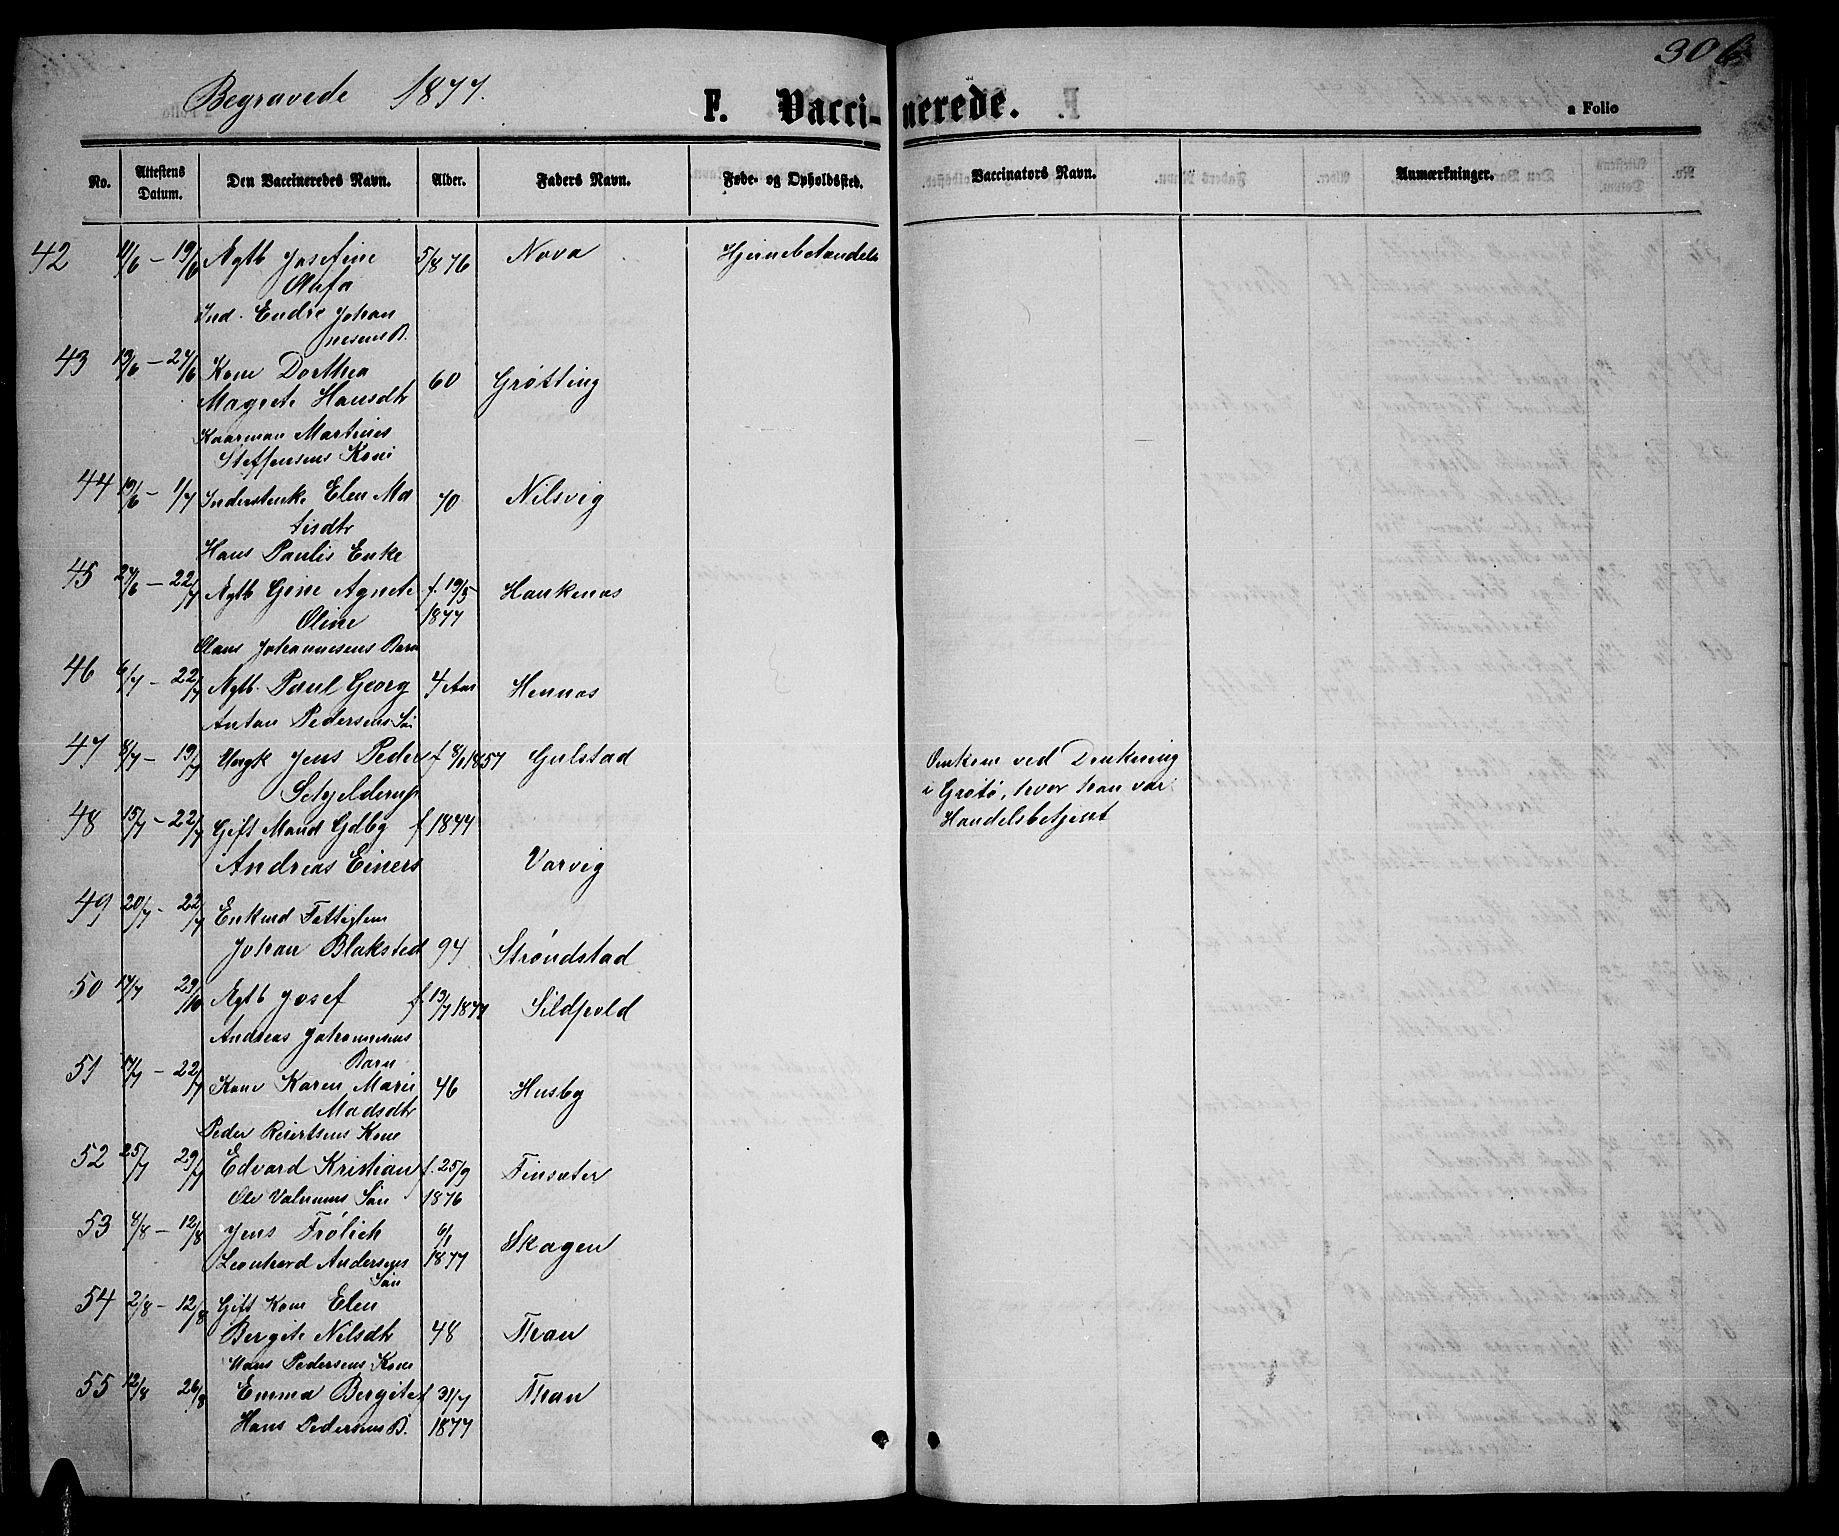 306
Begravede 1877.
F. Vaccinerede.
a Folio
No.
Attestens Datum.
Den Vaccineredes Navn.
Alder.
Faders Navn.
Føde- og Opholdssted.
Vaccinators Navn.
Anmærkninger.
42 11/6 – 19/6 Ægtb Josefine 5/8 76 Nova Hjernebetændels
Ind. Endre Johan
nesens B.
43 13/6 – 24/6 Kone Dorthea 60 Grøtting
Magrete Hansdtr
Kaarman Martines
Steffensens Kone
44 19/6 – 1/7 Inderstenke Elen Ma 70 Nilsvig
tisdtr
Hans Paulis Enke
45 24/6 – 22/7 Ægtb Gine Agnete f. 19/5 1877 Hankenæs
Oline
Olaus Johannesens Barn
46 6/7 – 22/7 Ægtb. Paul Georg 4 Aar Hennæs
Antan Pedersens Søn
47 8/7 – 19/7 Ungk Jens Peder f 8/1 1857 Gulstad Omkom ved Drukning
Schjelderup i Grøtø, hvor han var
Handelsbetjent
48 15/7 – 22/7 Gift Mand Gdbg f 1844
Andreas Einers Varvig
49 20/7 – 22/7 Enkmd Fattiglem
Johan Blaksted 94 Strøndstad
50 14/7 29/10 Ægtb Josef f. 13/7 1877 Sildpold
Andreas Johannesens
Barn
51 17/7 – 22/7 Kone Karen Marie 46 Husby
Madsdtr
Peder Reiertsens Kone
52 25/7 29/7 Edvard Kristian f. 25/9 1876 Finsæter
Ole Søn
53 4/8 – 12/8 Jens Frølich 6/1 1877 Skagen
Leonhard Andersens
Søn
54 2/8 – 12/8 Gift Kone Elen
Bergite Nilsdtr 48 Thran
Hans Pedersens Kone
55 12/8 26/8 Emma Bergite f 31/7 1877 Thran
Hans Pedersens B.